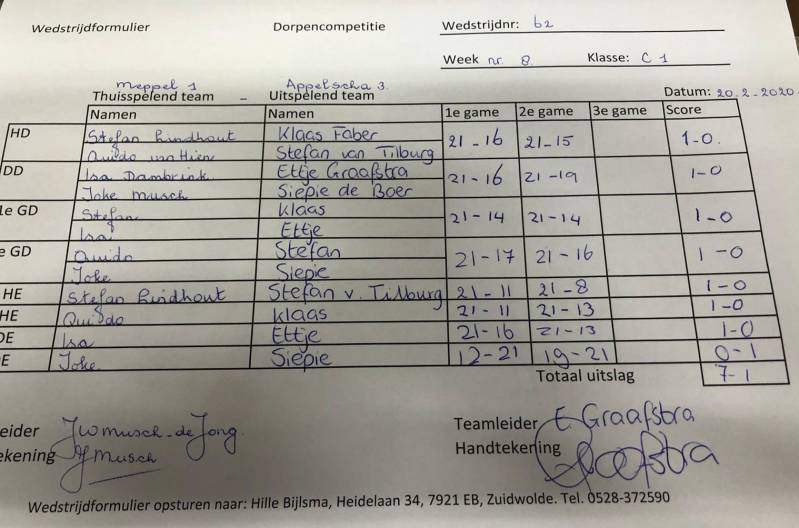 Wedstrijdformulier Dorpencompetitie Wedstrijdnr: 62
Week nr. 8 Klasse: C 1
Meppel 1 Appelscha 3
Thuisspelend team - Uitspelend team Datum: 20.2-2020
Namen Namen 1e game 2e game 3e game Score
HD Stefan Lindhout Klaas Faber 21-16 21-15 1-0
Quido van Hien Stefan van Tilburg
DD Isa Dambrink Ettje Graafstra 21-16 21-19 1-0
Joke Musch Siepie de Boer
1e GD Stefan Klaas 21-14 21-14 1-0
Isa Ettje
e GD Quido Stefan 21-17 21-16 1-0
Joke Siepie
HE Stefan Lindhout Stefan v. Tilburg 21-11 21-8 1-0
HE Quido Klaas 21-11 21-13 1-0
DE Isa Ettje 21-16 21-13 1-0
E Joke Siepie 12-21 19-21 0-1
Totaal uitslag 7-1
eider JW Musch-de Jong Teamleider E. Graafstra
ekening Musch Handtekening Graafstra
Wedstrijdformulier opsturen naar: Hille Bijlsma, Heidelaan 34, 7921 EB, Zuidwolde. Tel. 0528-372590